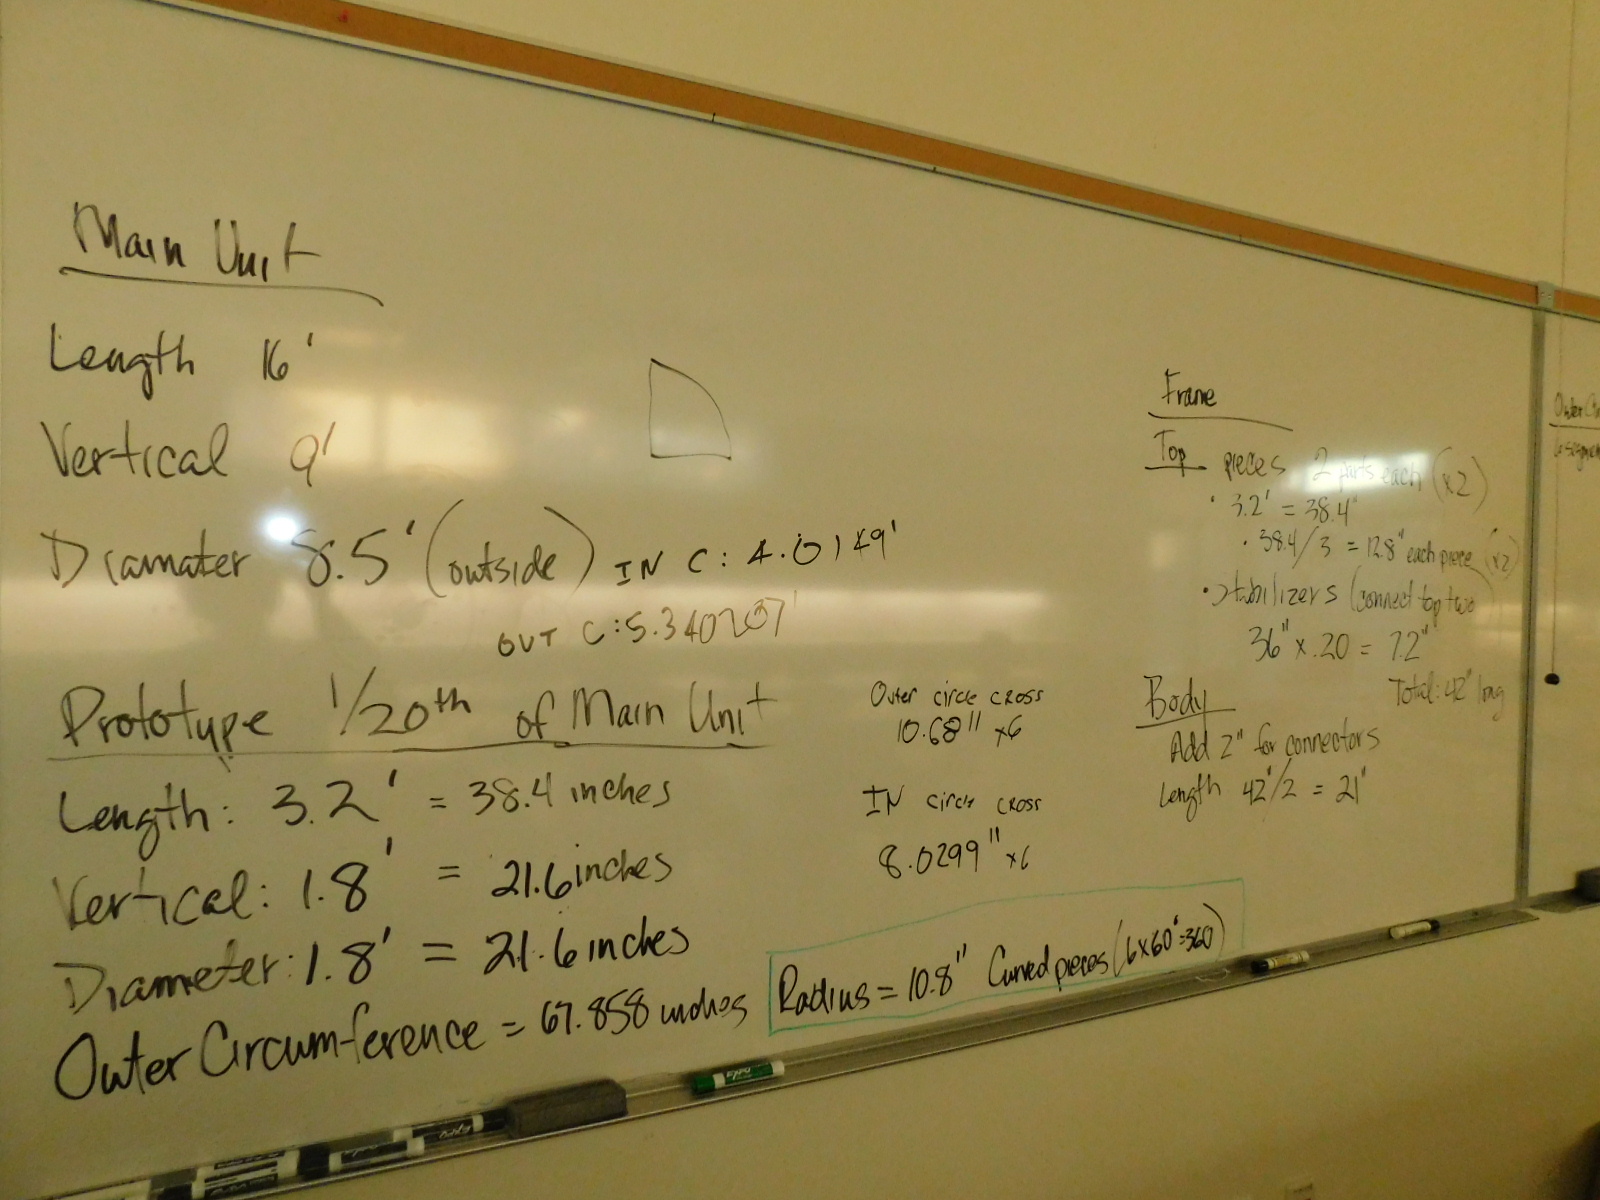 Main Unit
Length 16'
Vertical 9'
Diamater 8.5' (outside) IN C: 4.0149'
OUT C: 5.340707'
Prototype 1/20th of Main Unit
Length: 3.2' = 38.4 inches
Vertical: 1.8' = 21.6 inches
Diameter: 1.8' = 21.6 inches
Outer Circumference = 67.858 inches
Radius = 10.8" Curved pieces (6x60°=360)
Outer circle cross
10.68" x6
IN circle cross
8.0299" x6
Frame
Top pieces 2 parts each (x2)
• 3.2' = 38.4"
• 38.4/3 = 12.8" each piece (x2)
• Stabilizers (connect top two
36" x .20 = 7.2"
Total: 42" long
Body
Add 2" for connectors
Length 42'/2 = 21'
Outer
EXPO